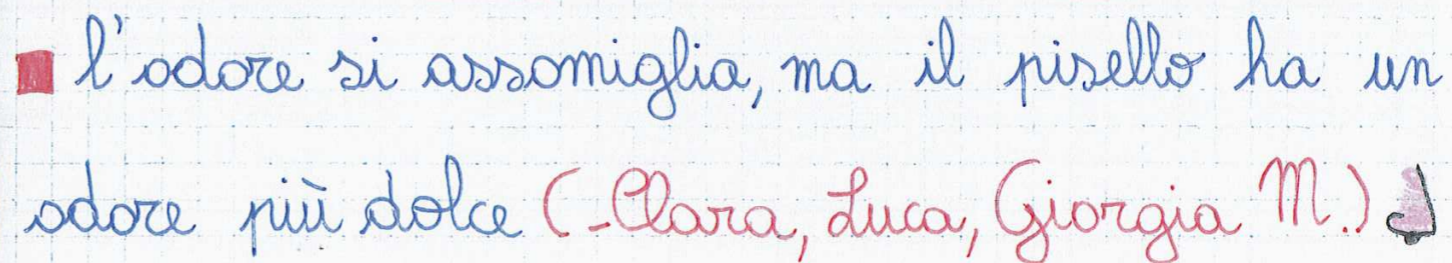 l'odore si assomiglia, ma il pisello ha un
odore più dolce (-Clara, Luca, Giorgia M.)